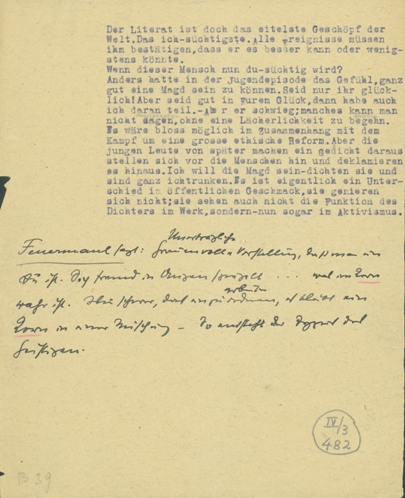 Der Literat ist doch das eitelste Geschöpf der
Welt.Das ich-süchtigste.Alle Ereignisse müssen
ihm bestätigen,dass er es besser kann oder wenig-
stens könnte.
Wenn dieser Mensch nun du-süchtig wird?
Anders hatte in der Jugendepisode das Gefühl,ganz
gut eine Magd sein zu können.Seid nur ihr glück-
lich!Aber seid gut in Eurem Glück,dann habe auch
ich daran teil.-Aber er schwieg;manches kann man
nicht sagen,ohne eine Lächerlichkeit zu begehn.
Es wäre bloss möglich im Zusammenhang mit dem
Kampf um eine grosse ethische Reform.Aber die
jungen Leute von später machen ein Gedicht daraus
stellen sich vor die Menschen hin und deklamieren
es hinaus.Ich will die Magd sein-dichten sie und
sind ganz ichtrunken.Es ist eigentlich ein Unter-
schied im öffentlichen Geschmack,sie genieren
sich nicht;sie sehen auch nicht die Funktion des
Dichters im Werk,sondern-nun sogar im Aktivismus.
Unerträgliche
Feuermaul sagt: Vorstellung,
Du ist. fremd in
wahr ist.
Zorn in einer Mischung – So entsteht der
Geistigen.
IV/3
482
B 39